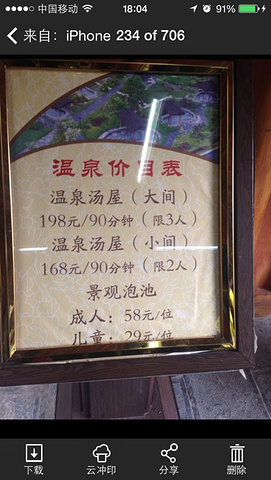 中国移动 18:04 91%
来自：iPhone 234 of 706
温泉价目表
温泉汤屋（大间）
198元/90分钟（限3人）
温泉汤屋（小间）
168元/90分钟（限2人）
景观泡池
成人：58元/位
儿童：29元/位
下载 云冲印 分享 删除